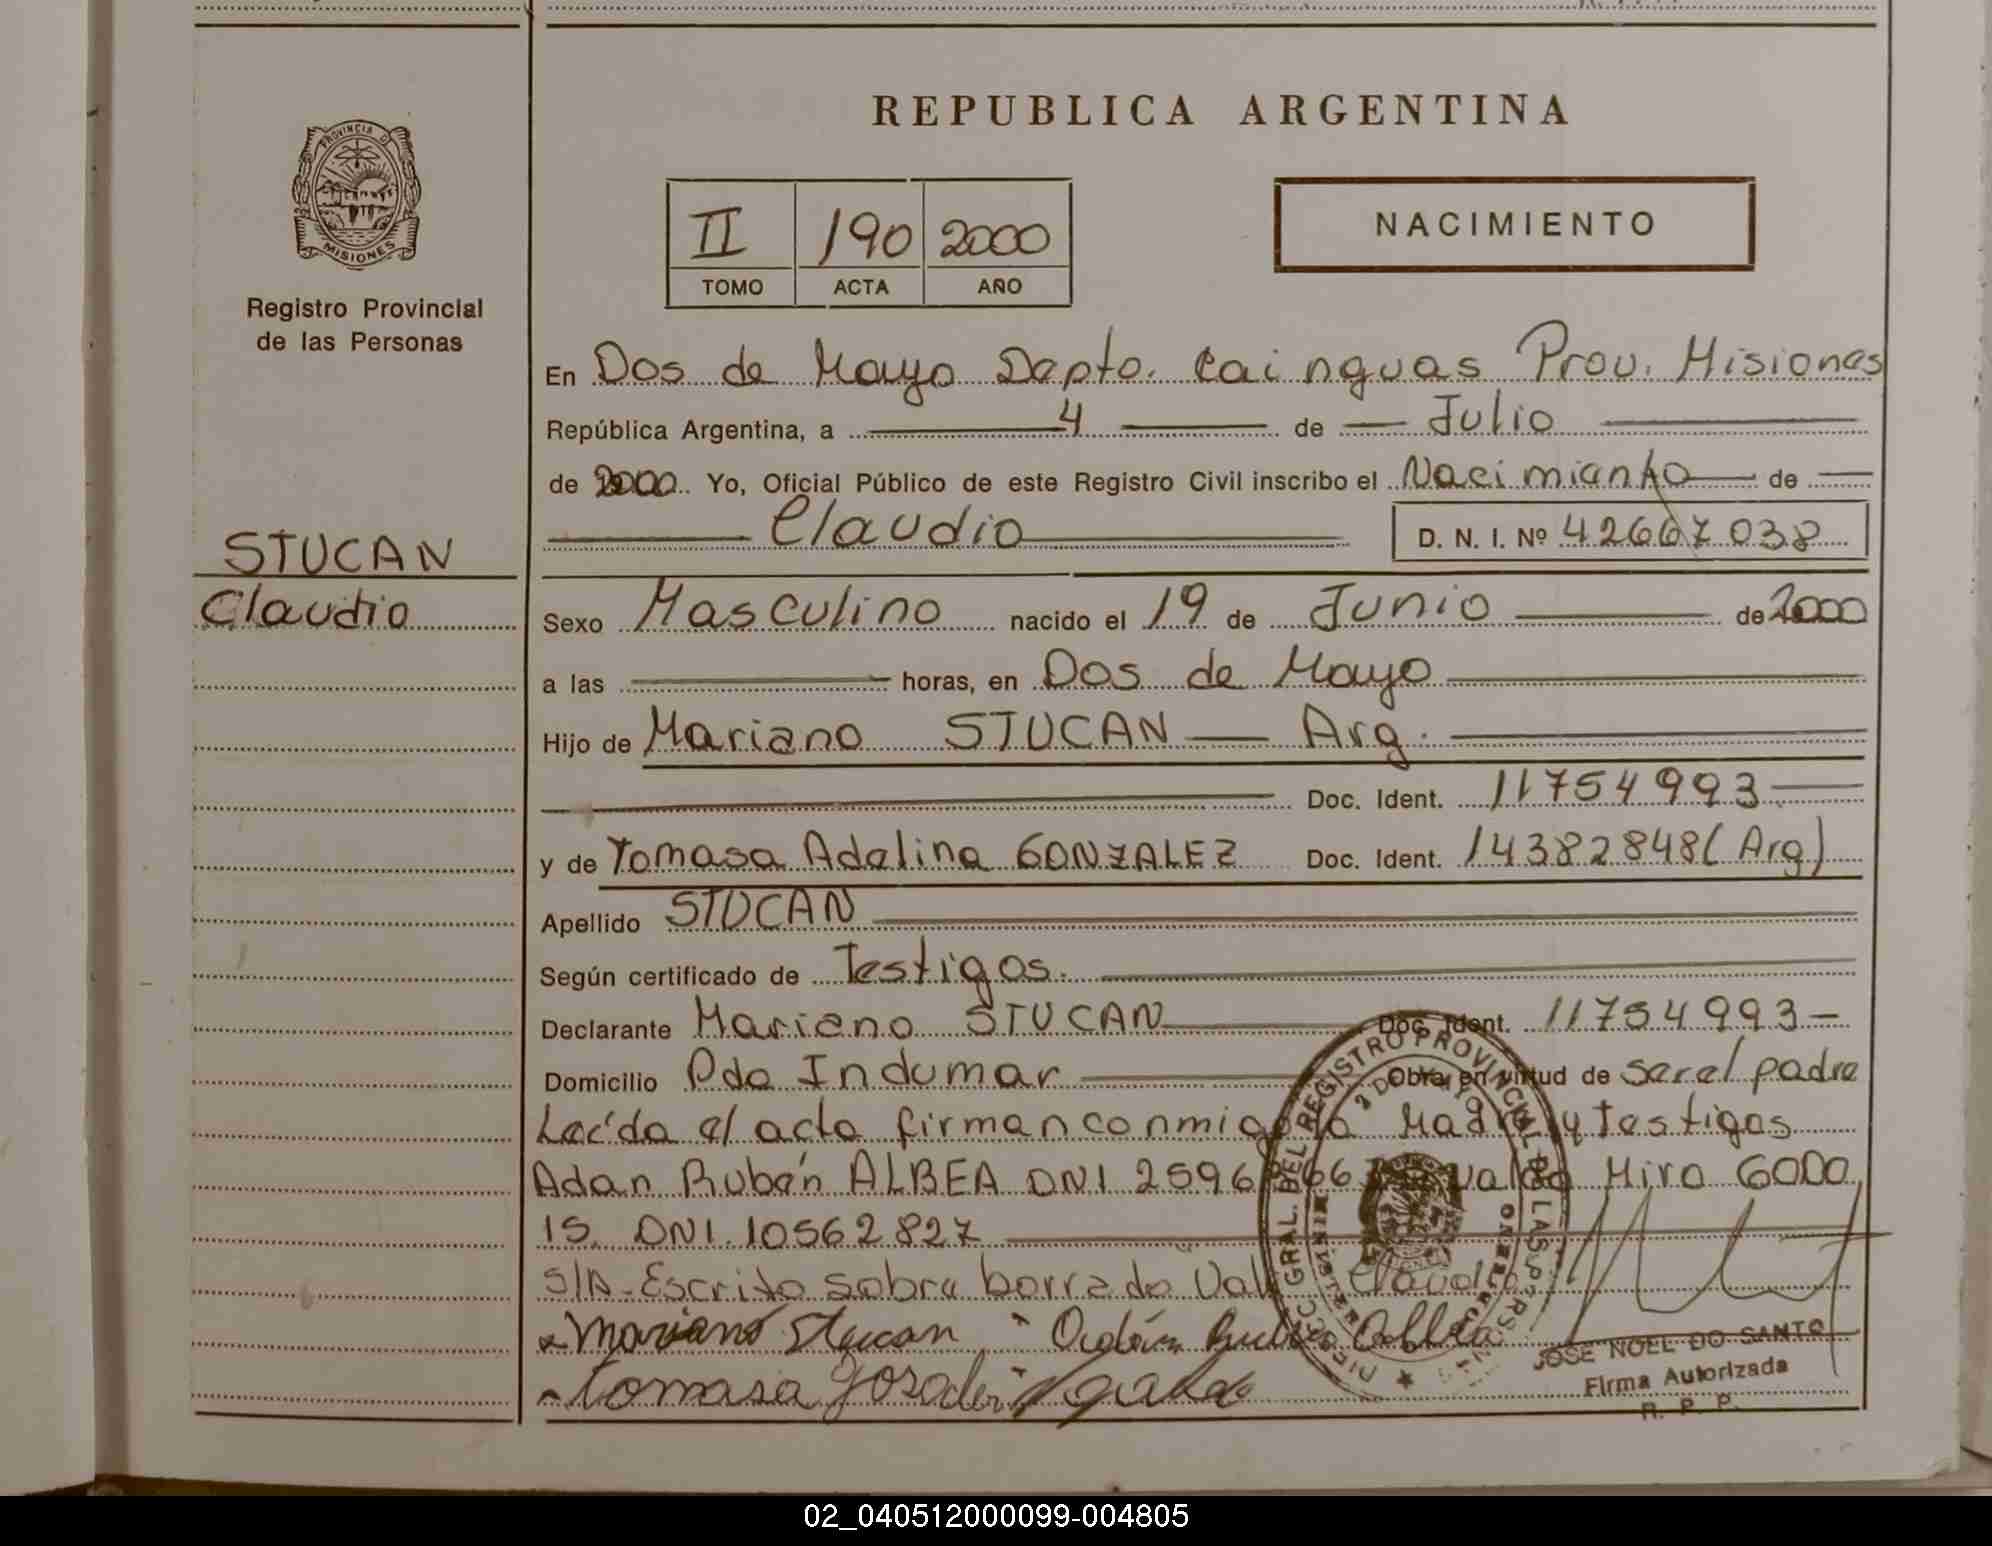 REPUBLICA ARGENTINA
PROVINCIA D
MISIONES
Registro Provincial
de las Personas
II 190 2000
TOMO ACTA AÑO
NACIMIENTO
En Dos de Mayo Depto. Cainguas Prov. Misiones
República Argentina, a 4 de Julio
de 2000 Yo, Oficial Público de este Registro Civil inscribo el Nacimiento de
Claudio D. N. I. Nº 42667038
STUCAN
Claudio
Sexo Masculino nacido el 19 de Junio de 2000
a las horas, en Dos de Mayo
Hijo de Mariano STUCAN Arg.
Doc. Ident. 11754993
y de Tomasa Adelina GONZALEZ Doc. Ident. 14382848 (Arg)
Apellido STUCAN
Según certificado de Testigos.
Declarante Mariano STUCAN Doc. Ident. 11754993
Domicilio Pdo Indumar Obra en virtud de ser el padre
Leída el acta firman conmigo la Madre y Testigos
Adan Rubén ALBEA DNI Miro GODO
IS. DNI. 10562827
S/A-Escrito sobre borrado Vale Claudio
Mariano Stucan
Tomasa
JOSE NOEL DO SANTO
Firma Autorizada
R. P. P.
02_040512000099-004805